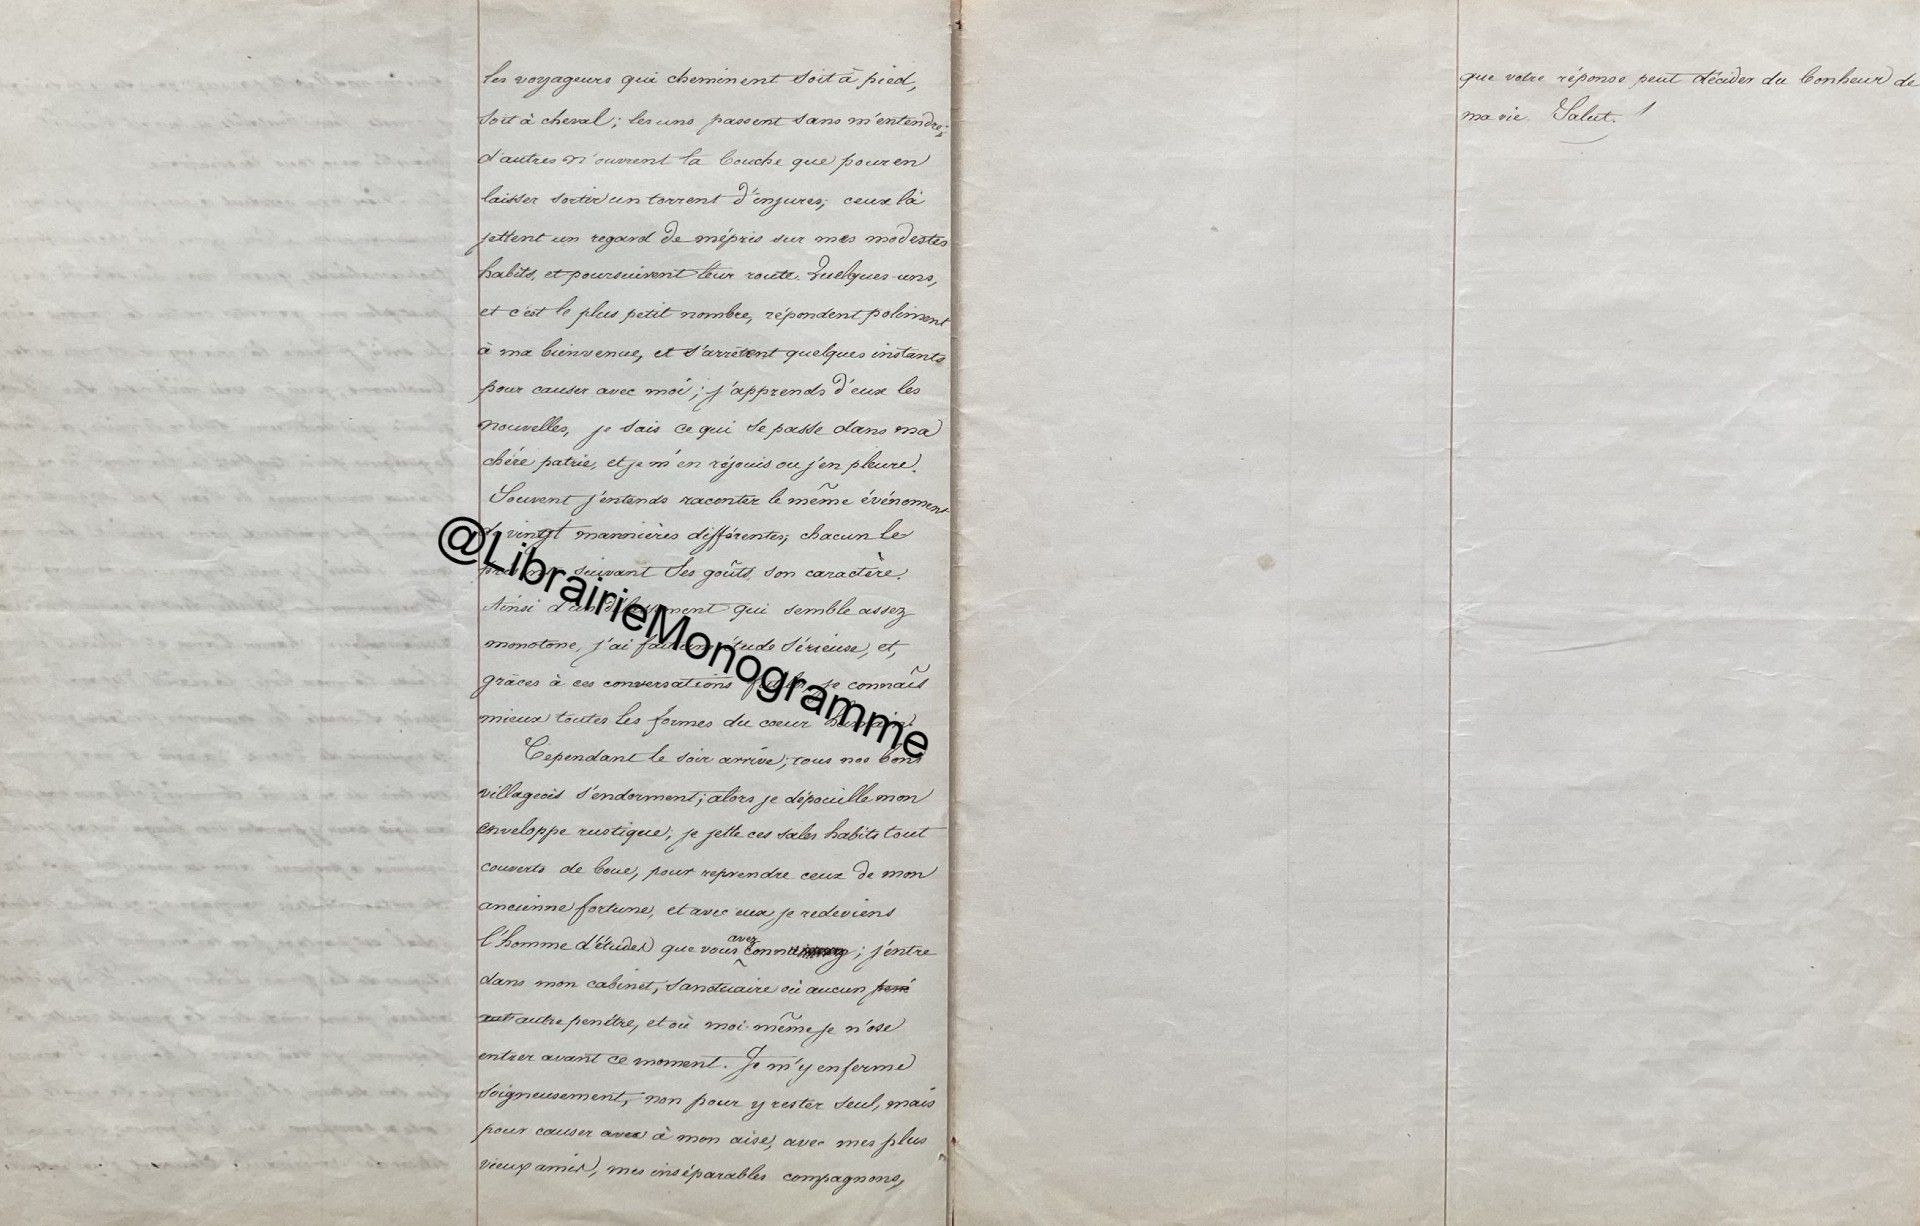 les voyageurs qui cheminent soit à pied,
soit à cheval; les uns passent sans m'entendre;
d'autres n'ouvrent la bouche que pour en
laisser sortir un torrent d'injures; ceux là
jettent un regard de mépris sur mes modestes
habits, et poursuivent leur route. Quelques-uns,
et c'est le plus petit nombre, répondent poliment
à ma bienvenue, et s'arrêtent quelques instants
pour causer avec moi; j'apprends d'eux les
nouvelles, je sais ce qui se passe dans ma
chère patrie, et je m'en réjouis ou j'en pleure.
Souvent j'entends raconter le même événement
de vingt mannières différentes; chacun le
suivant ses goûts, son caractère.
Ainsi d'un qui semble assez
monotone, j'ai fait une étude sérieuse, et,
grâces à ces conversations je connaîs
mieux toutes les formes du coeur humain.
Cependant le soir arrive; tous nos bons
villageois s'endorment; alors je dépouille mon
enveloppe rustique; je jette ces sales habits tout
couverts de boue, pour reprendre ceux de mon
ancienne fortune, et avec eux je redeviens
l'homme d'études que vous avez connu; j'entre
dans mon cabinet, sanctuaire où aucun
autre penètre, et où moi-même je n'ose
entrer avant ce moment. Je m'y enferme
soigneusement, non pour y rester seul, mais
pour causer avec à mon aise, avec mes plus
vieux amis, mes inséparables compagnons,
que votre réponse peut décider du bonheur de
ma vie. Salut.
@LibrairieMonogramme